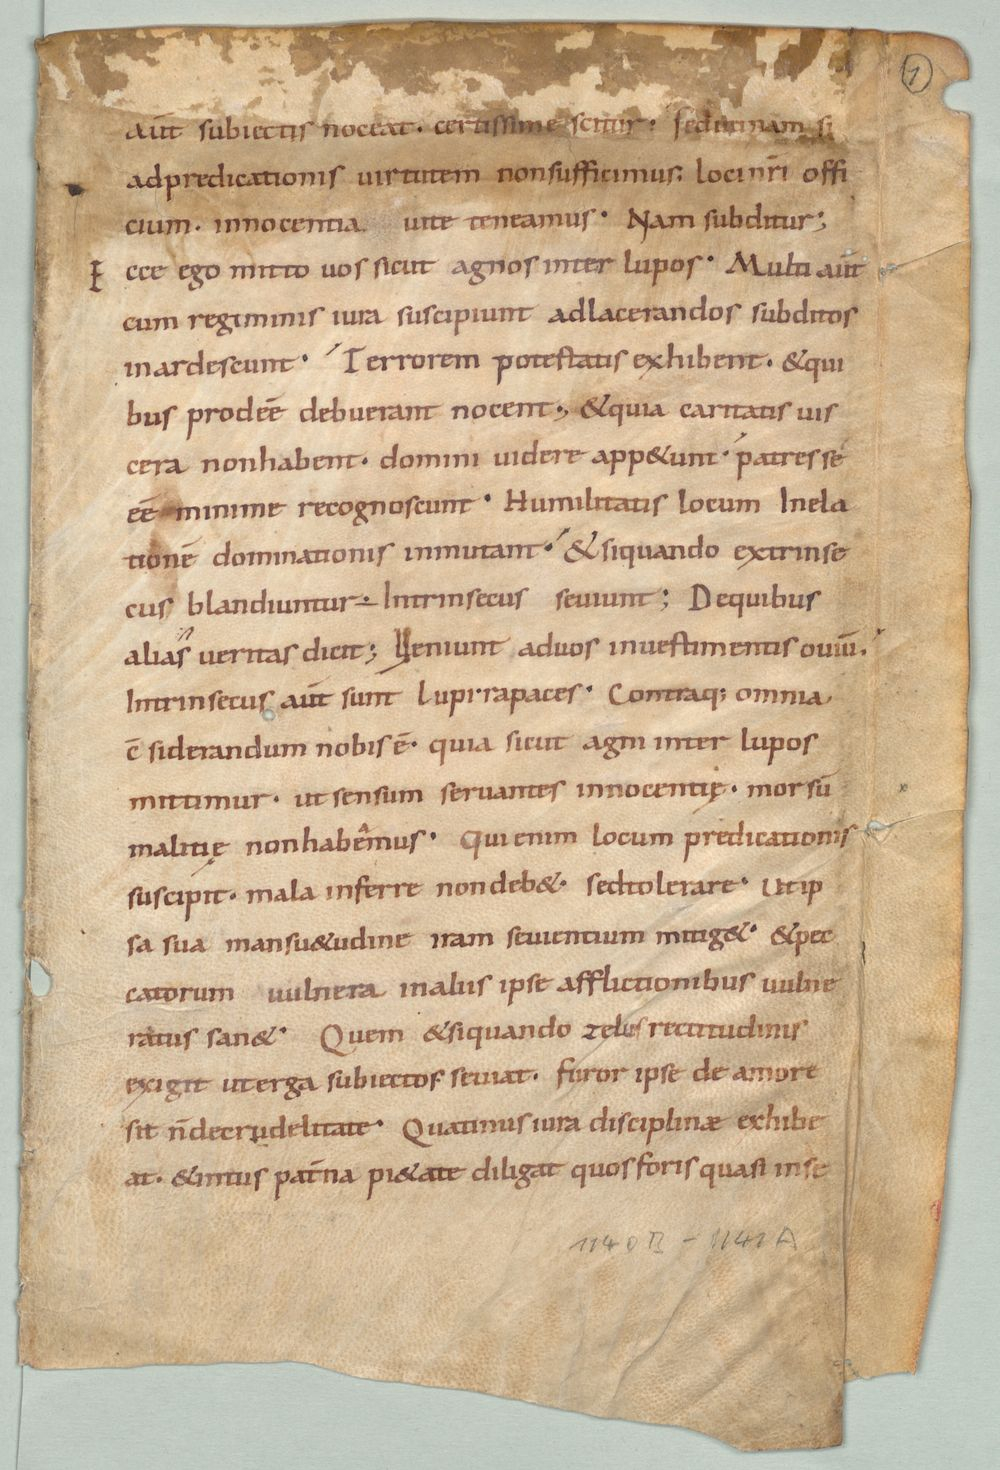 1
aut̄ subiectis noceat. certissime scitur; sed utinam si
adpredicationis uirtutem nonsufficimus. loci nr̄i offi
cium. innocentia uite teneamus. Nam subditur;
Ecce ego mitto uos sicut agnos inter lupos. Multi aut̄
cum regiminis iura suscipiunt adlacerandos subditos
inardescunt. Terrorem potestatis exhibent. &qui
bus prodeē debuerant nocent; &quia caritatis uis
cera nonhabent. domini uidere app&unt. patres se
eē minime recognoscunt. Humilitatis locum Inela
tionē dominationis inmutant. & siquando extrinse
cus blandiuntur. Intrinsecus seuiunt; Dequibus
alias ueritas dicit; Ueniunt aduos inuestimentis ouiū.
Intrinsecus aut̄ sunt lupi rapaces. Contraq; omnia
c̄ siderandum nobis ē. quia sicut agni inter lupos
mittimur. ut sensum seruantes innocentię. morsū
malitię nonhabemus. Qui enim locum predicationis
suscipit. mala inferre nondeb&. sedtolerare. Ut ip
sa sua mansu&udine iram seuientium mitig&. &pec
catorum uulnera inaliis ipse afflictionibus uulne
ratus san&. Quem &siquando zelus rectitudinis
exigit ut erga subiectos seuiat. furor ipse de amore
sit n̄decrudelitate. Quatinus iura disciplinæ exhibe
at. &intus pat̄na pi&ate diligat quos foris quasi inse
1140 D - 1141 A